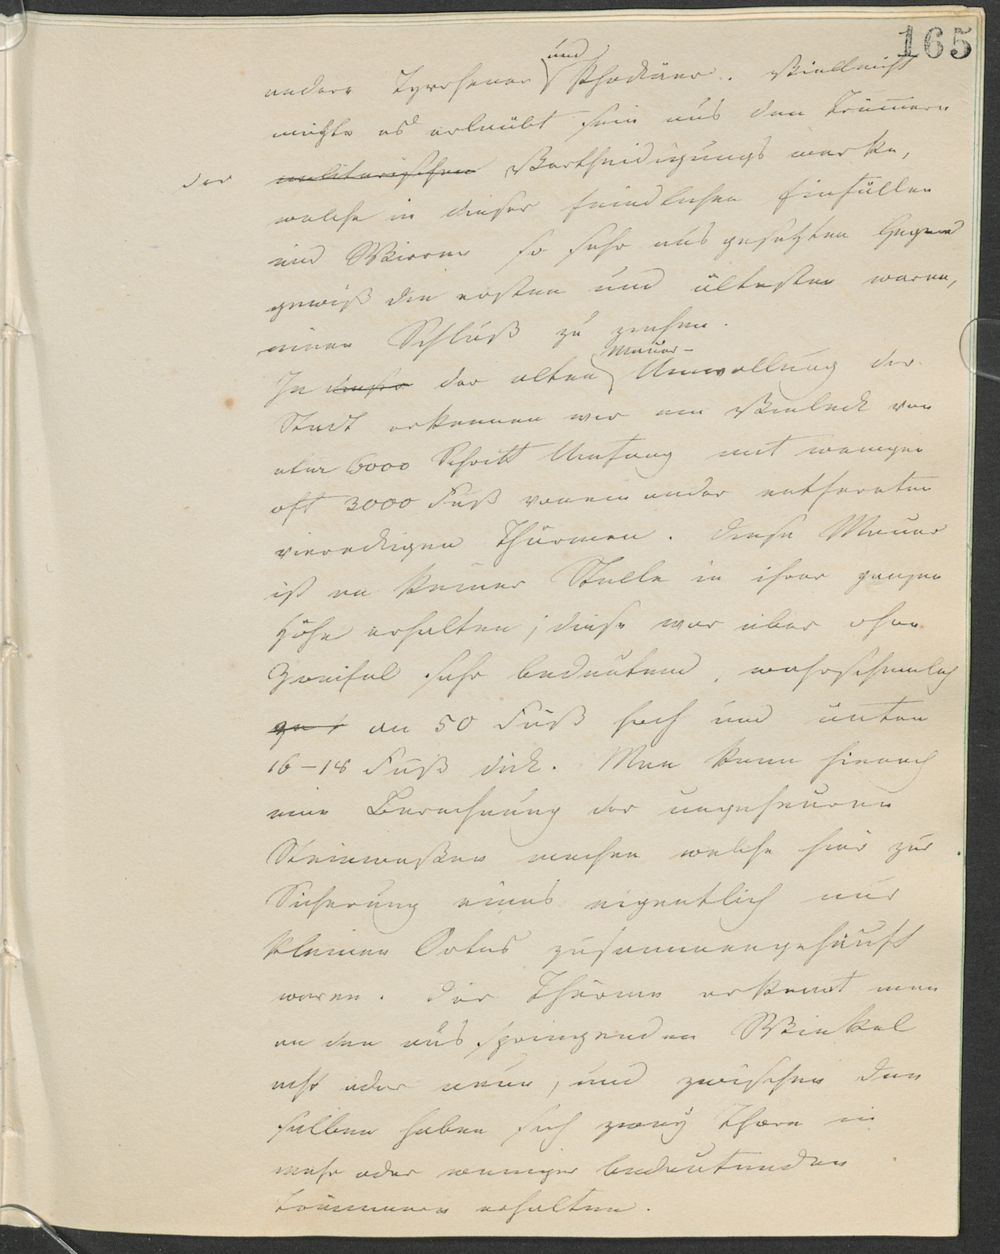 165
andere Tyrrhener und Phokäer. Vielleicht
möchte es erlaubt sein aus den Trümmern
der militärischen Vertheidigungs werke,
welche in dieser feindlichen Einfällen
und Wirren so sehr aus gesetzten Gegend
gewiß die ersten und ältesten waren,
einen Schluß zu ziehen.
In dieser der alten Mauer-Umwallung der
Stadt erkennen wir ein Vieleck von
etwa 6000 Schritt Umfang mit wenigen
oft 3000 Fuß von ein ander entfernten
viereckigen Thürmen. Diese Mauer
ist an keiner Stelle in ihrer ganzen
Höhe erhalten; diese war aber ohne
Zweifel sehr bedeutend, wahrscheinlich
an 50 Fuß hoch und unten
16–18 Fuß dick. Man kann hienach
eine Berechnung der ungeheuren
Steinmaßen machen welche hier zur
Sicherung eines eigentlich nur
kleinen Ortes zusammengehäuft
waren. Der Thürme erkennt man
an den aus springenden Winkel
acht oder neun, und zwischen den
selben haben sich zwey Thore in
mehr oder weniger bedeutenden
Trümmern erhalten.